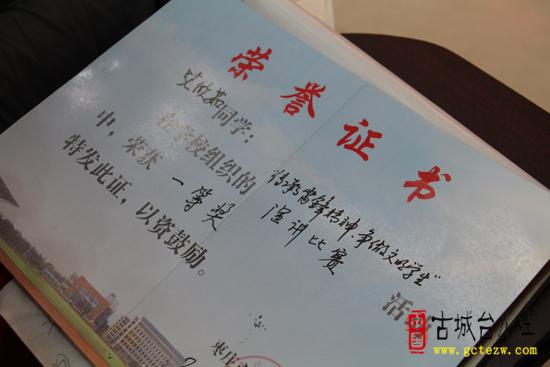 荣誉证书
同学：
在学校组织的"传承雷锋精神·争做文明学生"
演讲比赛 活动
中，荣获 一等奖
特发此证，以资鼓励。
枣庄
古城台儿庄
www.gctezw.com